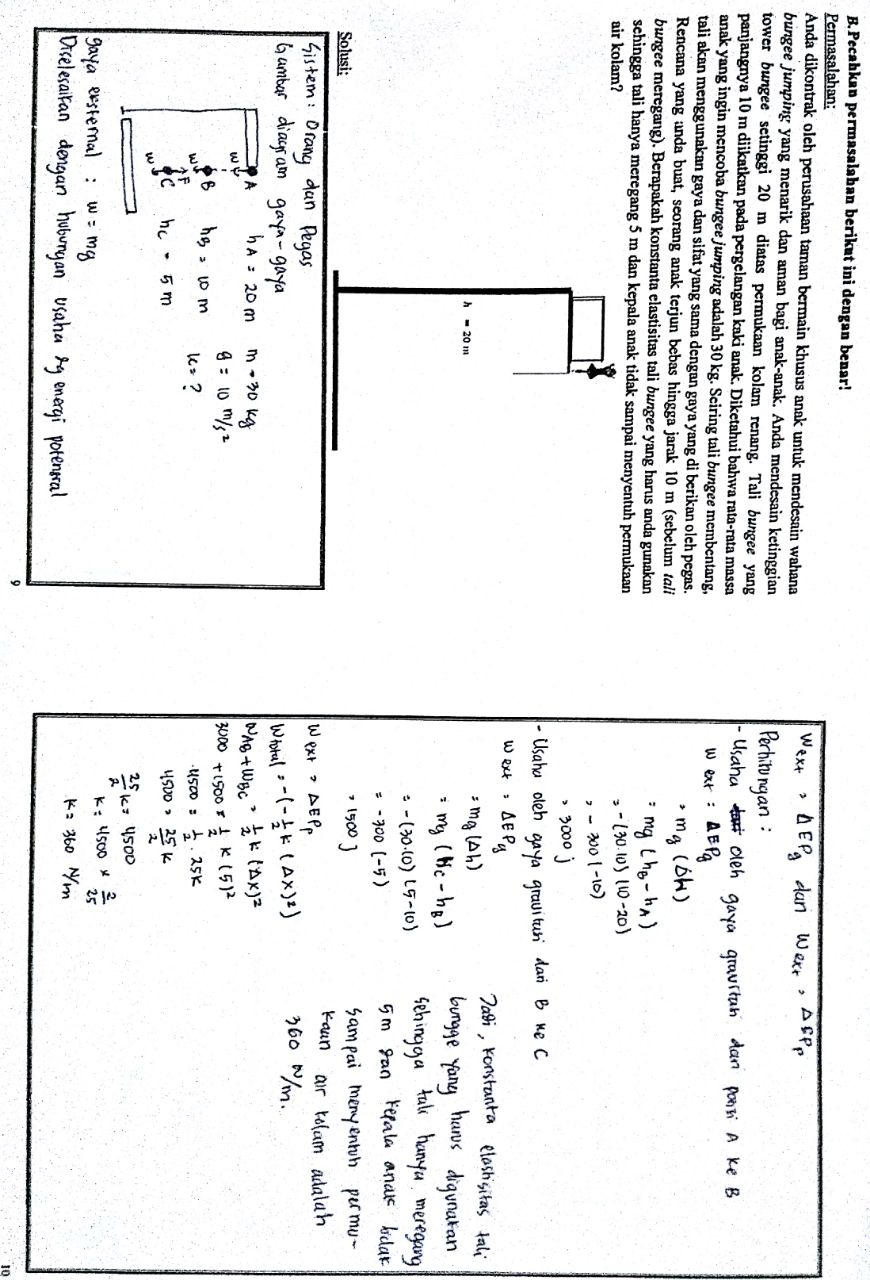 B.Pecahkan permasalahan berikut ini dengan benar!
Permasalahan:
Anda dikontrak oleh perusahaan taman bermain khusus anak untuk mendesain wahana
bungee jumping yang menarik dan aman bagi anak-anak. Anda mendesain ketinggian
tower bungee setinggi 20 m diatas permukaan kolam renang. Tali bungee yang
panjangnya 10 m diikatkan pada pergelangan kaki anak. Diketahui bahwa rata-rata massa
anak yang ingin mencoba bungee jumping adalah 30 kg. Seiring tali bungee membentang,
tali akan menggunakan gaya dan sifat yang sama dengan gaya yang di berikan oleh pegas.
Rencana yang anda buat, seorang anak terjun bebas hingga jarak 10 m (sebelum tali
bungee meregang). Berapakah konstanta elastisitas tali bungee yang harus anda gunakan
sehingga tali hanya meregang 5 m dan kepala anak tidak sampai menyentuh permukaan
air kolam?
h = 20 m
Solusi:
Sistem : Orang dan Pegas
Gambar diagram gaya-gaya
A hA = 20 m m = 30 kg
w g = 10 m/s²
B hB = 10 m k = ?
w F
C hC = 5 m
w
gaya eksternal : w = mg
Diselesaikan dengan hubungan usaha dg energi potensial
9
W ext = ΔEPg dan W ext = ΔEPp
Perhitungan :
- Usaha oleh gaya gravitasi dari posisi A ke B
W ext = ΔEPg
= mg (Δh)
= mg (hB - hA)
= -(30.10) (10-20)
= - 300 (-10)
= 3000 j
- Usaha oleh gaya gravitasi dari B ke C
W ext = ΔEPg
= mg (Δh)
= mg (hC - hB)
= -(30.10) (5-10)
= -300 (-5)
= 1500 j
W ext = ΔEPp
W total = -(-½ k (Δx)²)
WAB + WBC = ½ k (Δx)²
3000 + 1500 = ½ k (5)²
4500 = ½ . 25k
4500 = 25/2 k
25/2 k = 4500
k = 4500 x 2/25
k = 360 N/m
Jadi, konstanta elastisitas tali
bungge yang harus digunakan
sehingga tali hanya meregang
5m dan kepala anak tidak
sampai menyentuh permu-
kaan air kolam adalah
360 N/m.
10